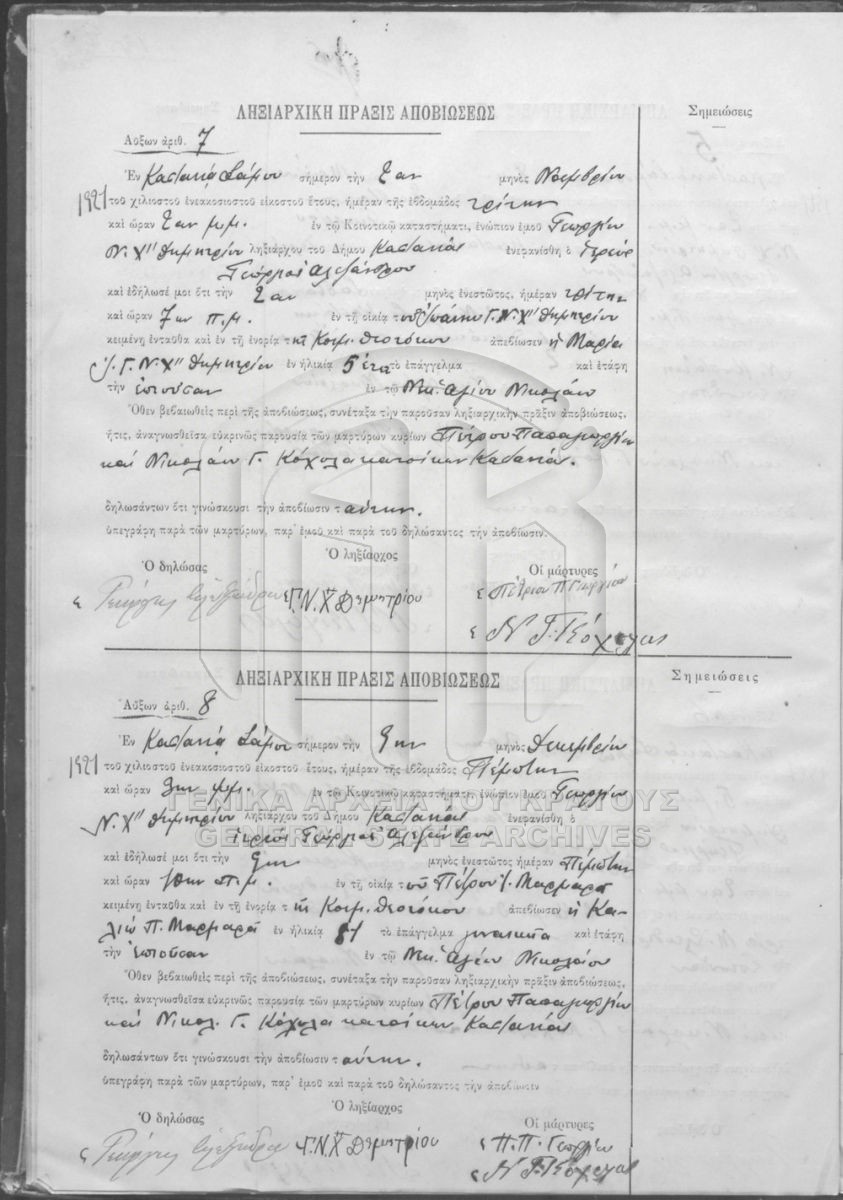 ΛΗΞΙΑΡΧΙΚΗ ΠΡΑΞΙΣ ΑΠΟΒΙΩΣΕΩΣ
Σημειώσεις
Αὔξων ἀριθ. 7
Ἐν Καστανιᾷ Σάμου σήμερον τὴν 2αν μηνὸς Νοεμβρίου
1921 τοῦ χιλιοστοῦ ἐνεακοσιοστοῦ εἰκοστοῦ ἔτους, ἡμέραν τῆς ἑβδομάδος τρίτην
καὶ ὥραν 2αν μ.μ. ἐν τῷ Κοινοτικῷ καταστήματι, ἐνώπιον ἐμοῦ Γεωργίου
Ν. Χ'' Δημητρίου ληξιάρχου τοῦ Δήμου Καστανιᾶς ἐνεφανίσθη ὁ ἱερεὺς
Γεώργιος Ἀλεξάνδρου
καὶ ἐδήλωσέ μοι ὅτι τὴν 2αν μηνὸς ἐνεστῶτος, ἡμέραν τρίτην
καὶ ὥραν 7ην π.μ. ἐν τῇ οἰκίᾳ τοῦ Γ. Ν. Χ'' Δημητρίου
κειμένῃ ἐνταῦθα καὶ ἐν τῇ ἐνορίᾳ τῆς Κοιμ. Θεοτόκου ἀπεβίωσεν ἡ Μαρία
Γ. Ν. Χ'' Δημητρίου ἐν ἡλικίᾳ 5 ἔτη τὸ ἐπάγγελμα καὶ ἐτάφη
τὴν ἐπιοῦσαν ἐν τῷ Νεκ. Ἁγίου Νικολάου
Ὅθεν βεβαιωθεὶς περὶ τῆς ἀποβιώσεως, συνέταξα τὴν παροῦσαν ληξιαρχικὴν πρᾶξιν ἀποβιώσεως,
ἥτις, ἀναγνωσθεῖσα εὐκρινῶς παρουσίᾳ τῶν μαρτύρων κυρίων Πέτρου Παπαγεωργίου
καὶ Νικολάου Γ. Κόχυλα κατοίκων Καστανιᾶς.
δηλωσάντων ὅτι γινώσκουσι τὴν ἀποβίωσιν ταύτην.
ὑπεγράφη παρὰ τῶν μαρτύρων, παρ' ἐμοῦ καὶ παρὰ τοῦ δηλώσαντος τὴν ἀποβίωσιν.
Ὁ δηλώσας
Ὁ ληξίαρχος
Οἱ μάρτυρες
Γ. Ν. Χ'' Δημητρίου
ΛΗΞΙΑΡΧΙΚΗ ΠΡΑΞΙΣ ΑΠΟΒΙΩΣΕΩΣ
Σημειώσεις
Αὔξων ἀριθ. 8
Ἐν Καστανιᾷ Σάμου σήμερον τὴν 9ην μηνὸς Δεκεμβρίου
1921 τοῦ χιλιοστοῦ ἐνεακοσιοστοῦ εἰκοστοῦ ἔτους, ἡμέραν τῆς ἑβδομάδος Πέμπτην
καὶ ὥραν μ.μ. ἐν τῷ Κοινοτικῷ καταστήματι, ἐνώπιον ἐμοῦ Γεωργίου
Ν. Χ'' Δημητρίου ληξιάρχου τοῦ Δήμου Καστανιᾶς ἐνεφανίσθη ὁ
ἱερεὺς Γεώργιος Ἀλεξάνδρου
ΓΕΝΙΚΑ ΑΡΧΕΙΑ ΤΟΥ ΚΡΑΤΟΥΣ
GENERAL STATE ARCHIVES
καὶ ἐδήλωσέ μοι ὅτι τὴν 9ην μηνὸς ἐνεστῶτος ἡμέραν Πέμπτην
καὶ ὥραν 10ην π.μ. ἐν τῇ οἰκίᾳ τοῦ Πέτρου Μαρμαρᾶ
κειμένῃ ἐνταῦθα καὶ ἐν τῇ ἐνορίᾳ τῆς Κοιμ. Θεοτόκου ἀπεβίωσεν ἡ Κα-
λιὼ Π. Μαρμαρᾶ ἐν ἡλικίᾳ τὸ ἐπάγγελμα καὶ ἐτάφη
τὴν ἐπιοῦσαν ἐν τῷ Νεκ. Ἁγίου Νικολάου
Ὅθεν βεβαιωθεὶς περὶ τῆς ἀποβιώσεως, συνέταξα τὴν παροῦσαν ληξιαρχικὴν πρᾶξιν ἀποβιώσεως,
ἥτις, ἀναγνωσθεῖσα εὐκρινῶς παρουσίᾳ τῶν μαρτύρων κυρίων Πέτρου Παπαγεωργίου
καὶ Νικολ. Γ. Κόχυλα κατοίκων Καστανιᾶς
δηλωσάντων ὅτι γινώσκουσι τὴν ἀποβίωσιν ταύτην.
ὑπεγράφη παρὰ τῶν μαρτύρων, παρ' ἐμοῦ καὶ παρὰ τοῦ δηλώσαντος τὴν ἀποβίωσιν
Ὁ δηλώσας
Ὁ ληξίαρχος
Οἱ μάρτυρες
Γ. Ν. Χ'' Δημητρίου
Π. Π. Γεωργίου